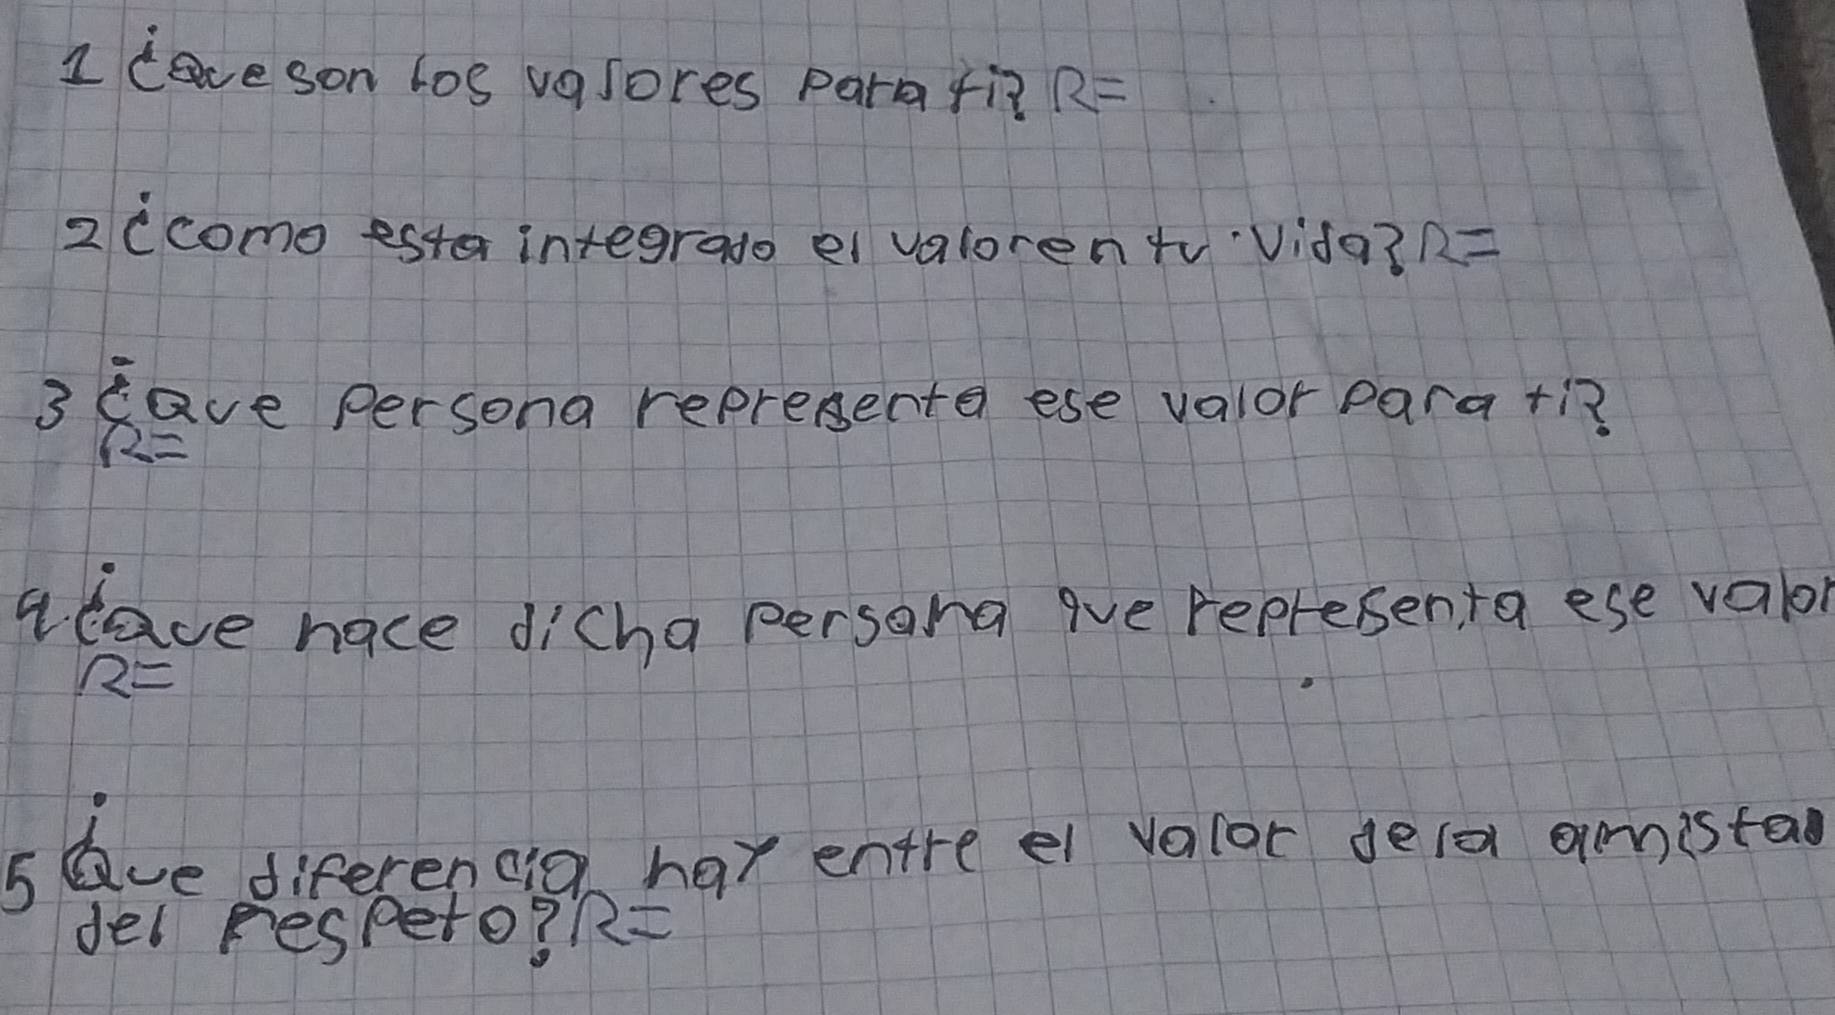 1 ¿Que son los valores para ti? R=
2 ¿como esta integrado el valor en tu vida? R=
3 ¿Que persona representa ese valor para ti?
R=
4 ¿Que hace dicha persona que representa ese valor
R=
5 ¿Que diferencia hay entre el valor de la amistad
del respeto? R=